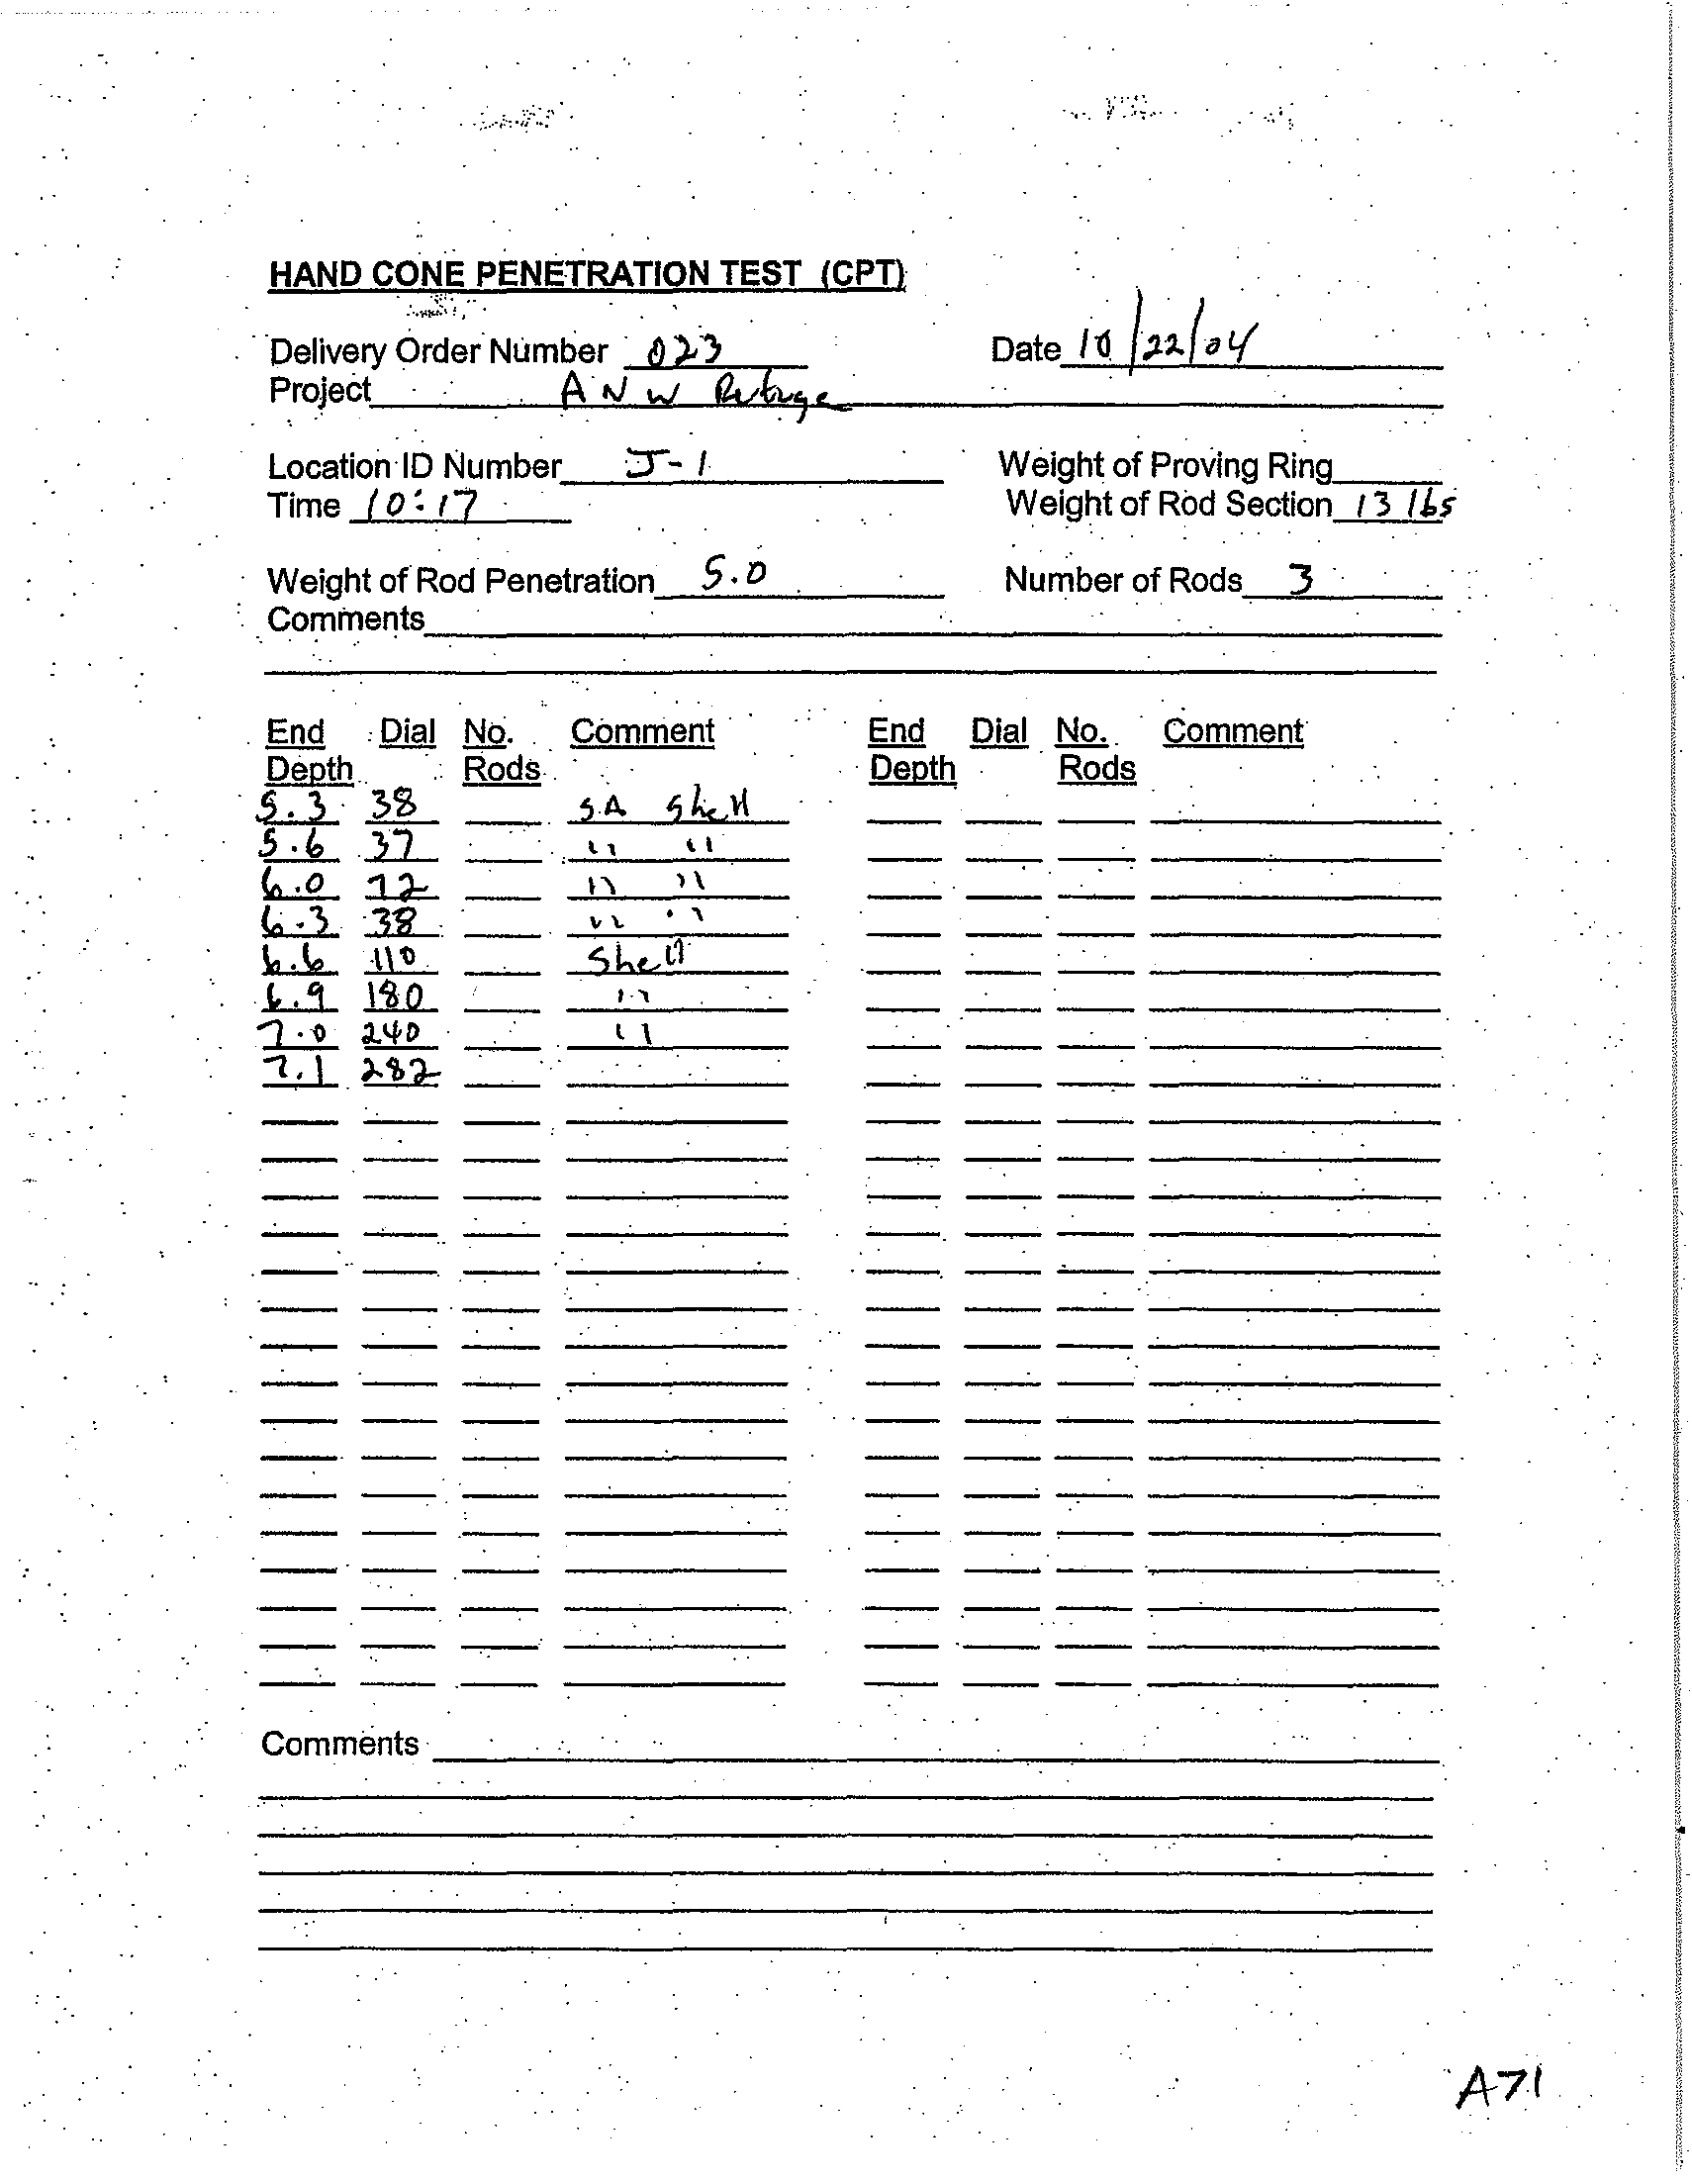 HAND CONE PENETRATION TEST (CPT)
Delivery Order Number 023 Date 10/22/04
Project ANW Refuge
Location ID Number J-1 Weight of Proving Ring
Time 10:17 Weight of Rod Section 13 lbs
Weight of Rod Penetration 5.0 Number of Rods 3
Comments
End Dial No. Comment End Dial No. Comment
Depth Rods Depth Rods
5.3 38 SA Shell
5.6 37 " "
6.0 72 " "
6.3 38 " "
6.6 110 Shell
6.9 180 "
7.0 240 "
7.1 282
Comments
A71